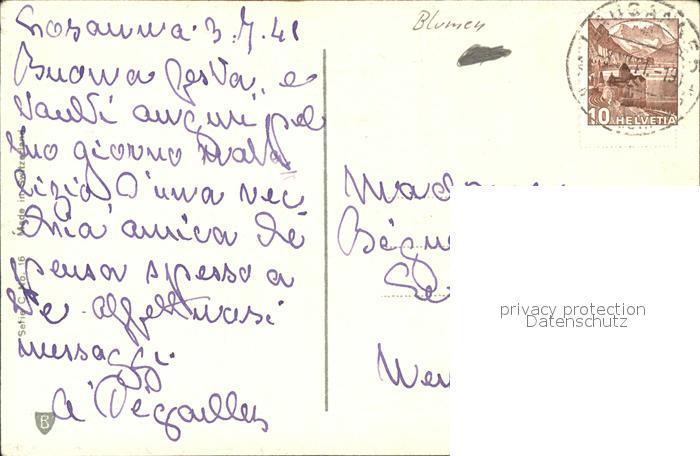 Losanna. 3.7.41
Buona festa, e
tanti auguri pel
tuo giorno nata
lizio d'una vec
chia amica che
pensa spesso a
te. Affettuosi
messaggi.
Blumen
LAUSANNE
10 HELVETIA
Madame
Serie C No. 16 Made in Switzerland
B
privacy protection
Datenschutz